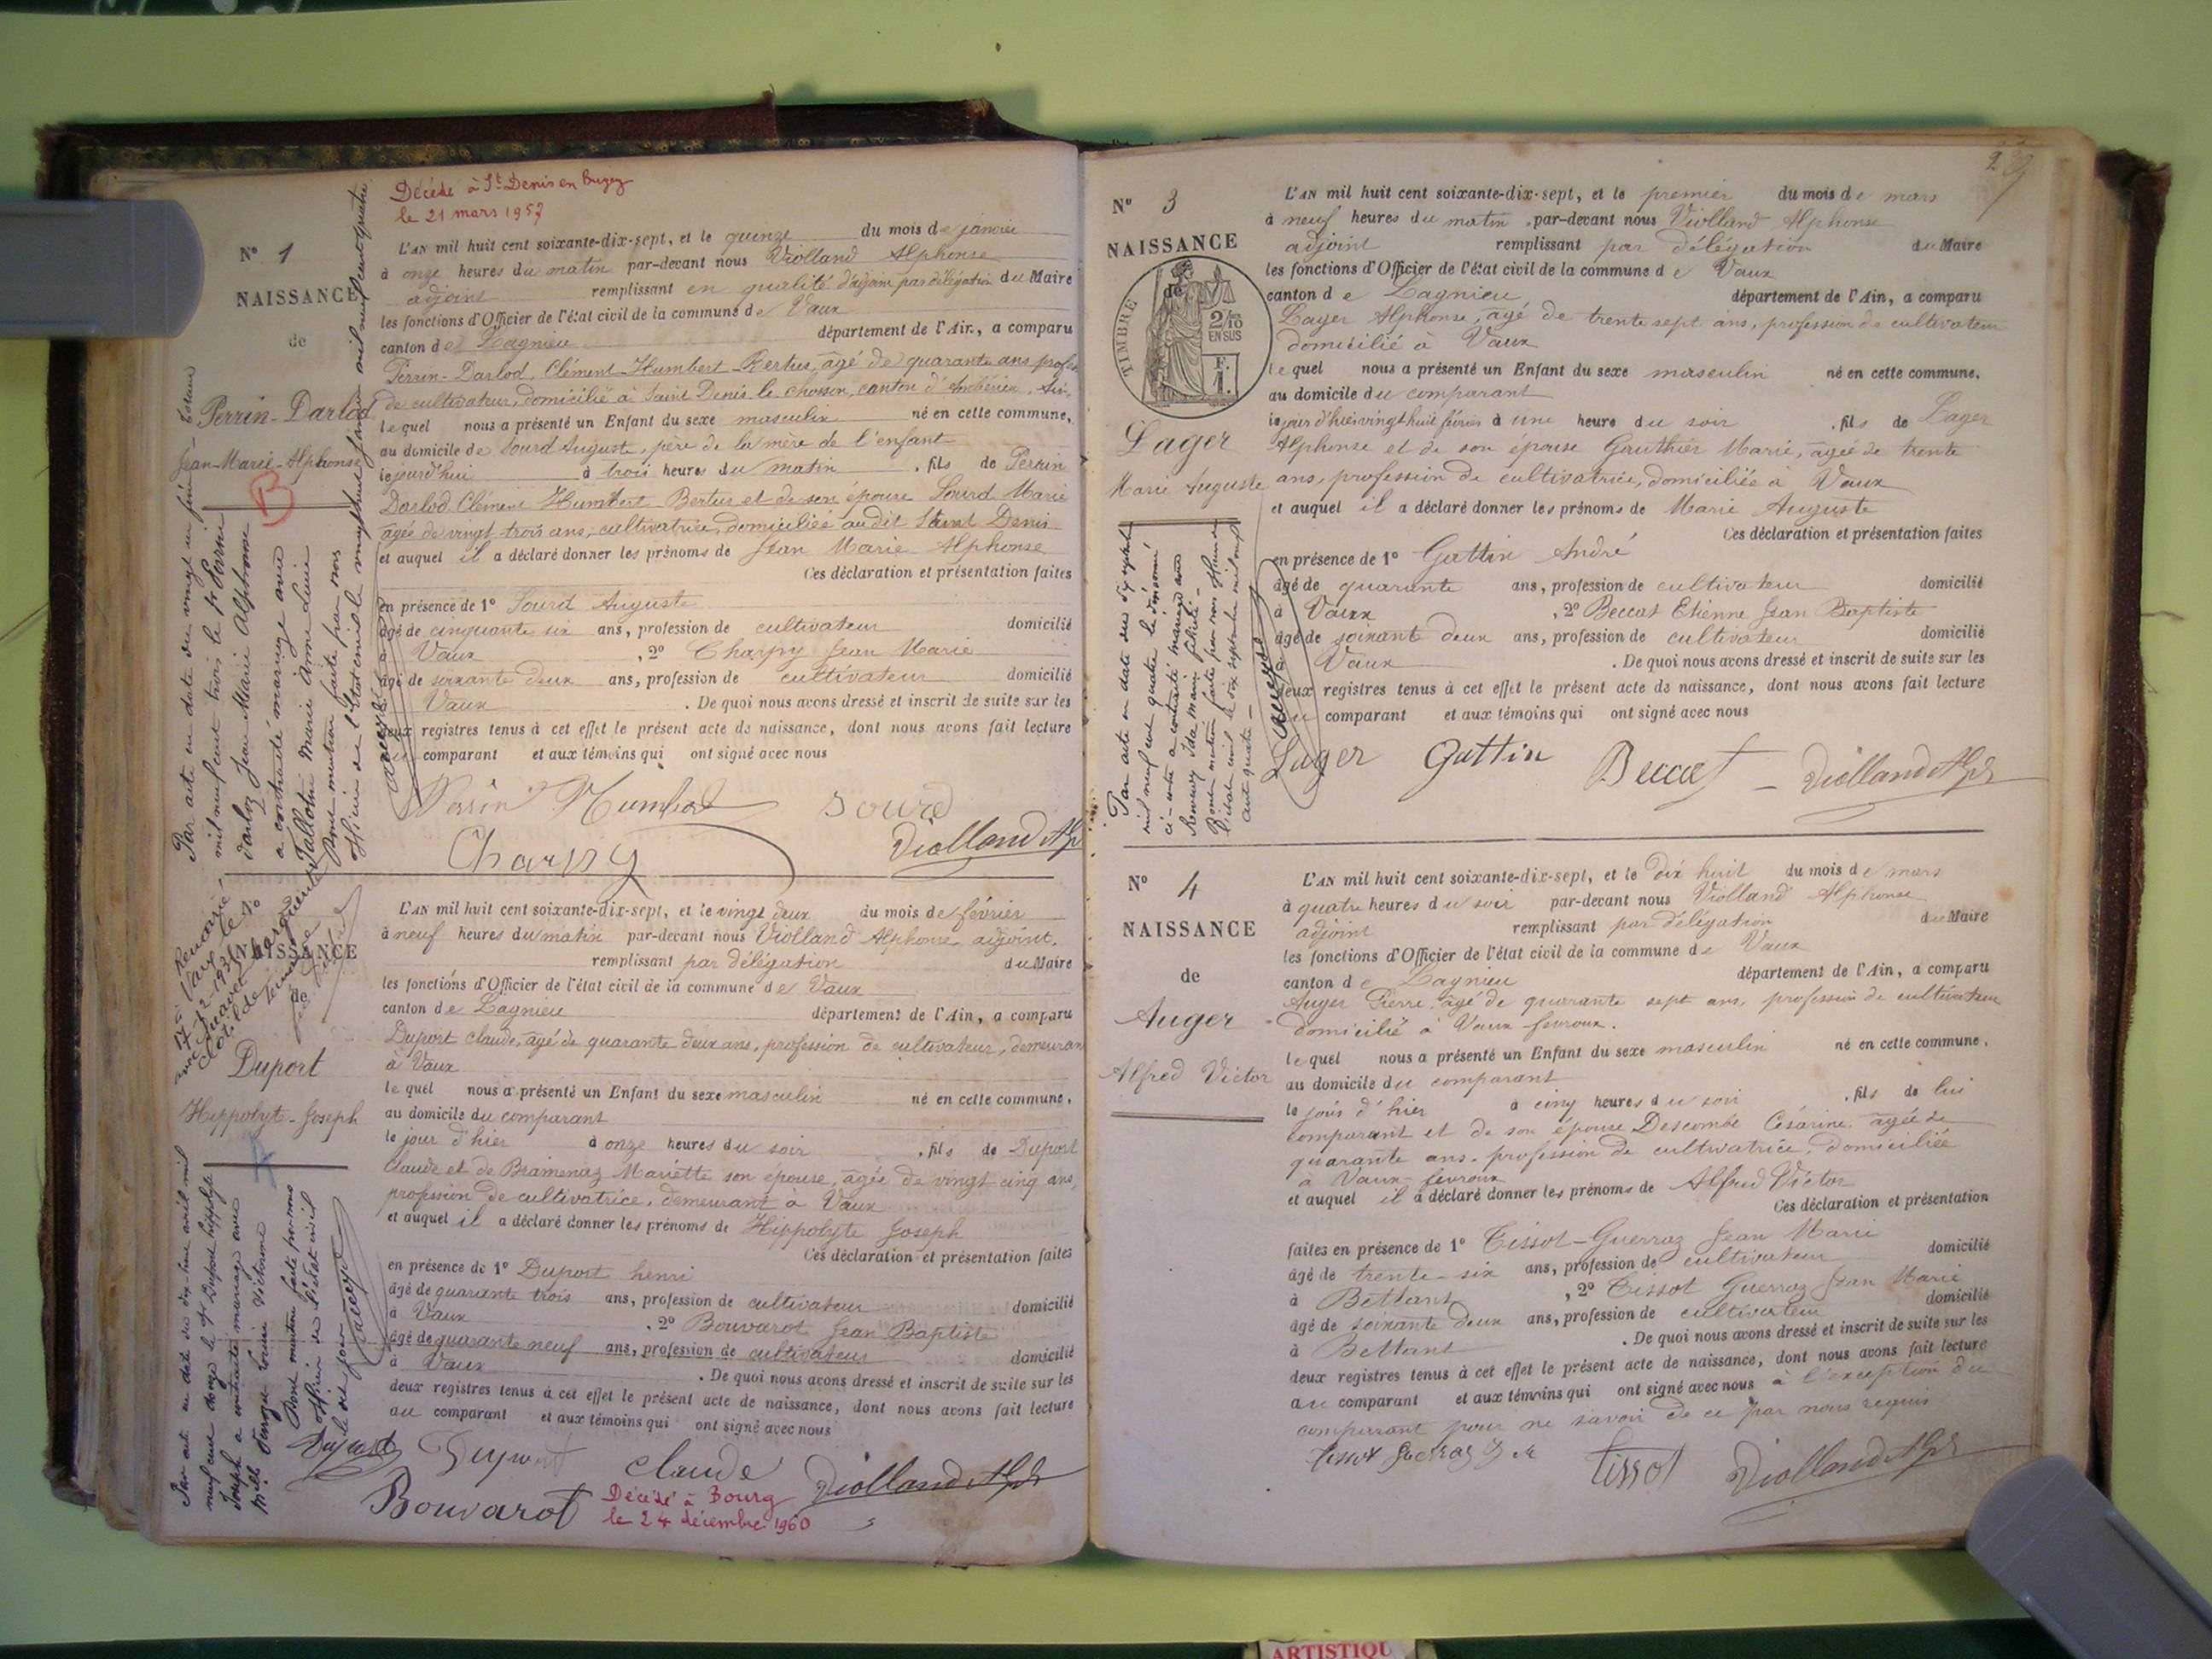 Décédé à St Denis en Bugey
le 21 mars 1957
N° 1
NAISSANCE
de
Perrin-Darlod
Jean-Marie-Alphonse
B
L'AN mil huit cent soixante-dix-sept, et le quinze du mois de janvier
à onze heures du matin par-devant nous Violland Alphonse
adjoint remplissant en qualité d'adjoint par délégation du Maire
les fonctions d'Officier de l'état civil de la commune de Vaux
canton de Lagnieu département de l'Ain, a comparu
Perrin-Darlod, Clément-Humbert-Bertus, âgé de quarante ans profes
de cultivateur, domicilié à Saint Denis le chosson, canton d'Ambérieu, Ain,
lequel nous a présenté un Enfant du sexe masculin né en cette commune,
au domicile de Sourd Auguste, père de la mère de l'enfant
lejourd'hui à trois heures du matin, fils de Perrin
Darlod Clément Humbert Bertus et de son épouse Sourd Marie
âgée de vingt trois ans, cultivatrice, domiciliée audit Saint Denis
et auquel il a déclaré donner les prénoms de Jean Marie Alphonse
Ces déclaration et présentation faites
en présence de 1° Sourd Auguste
âgé de cinquante six ans, profession de cultivateur domicilié
à Vaux, 2° Charpy Jean Marie
âgé de soixante deux ans, profession de cultivateur domicilié
Vaux. De quoi nous avons dressé et inscrit de suite sur les
deux registres tenus à cet effet le présent acte de naissance, dont nous avons fait lecture
au comparant et aux témoins qui ont signé avec nous
Perrin Humbert Sourd
Charpy Violland Alph
Par acte en date du vingt un juin
mil neuf cent trois le sr Perrin
Darloz Jean Marie Alphonse
a contracté mariage avec
Tallotin Marie Anne Louise
Dont mention faite par nous
officier de l'état civil le
NAISSANCE
de
Duport
Hippolyte-Joseph
L'AN mil huit cent soixante-dix-sept, et le vingt deux du mois de février
à neuf heures du matin par-devant nous Violland Alphonse adjoint.
remplissant par délégation du Maire
les fonctions d'Officier de l'état civil de la commune de Vaux
canton de Lagnieu département de l'Ain, a comparu
Duport Claude, âgé de quarante deux ans, profession de cultivateur, demeuran
à Vaux
lequel nous a présenté un Enfant du sexe masculin né en cette commune,
au domicile du comparant
le jour d'hier à onze heures du soir, fils de Duport
Claude et de Bramenaz Mariette son épouse, âgée de vingt cinq ans,
profession de cultivatrice, demeurant à Vaux
et auquel il a déclaré donner les prénoms de Hippolyte Joseph
Ces déclaration et présentation faites
en présence de 1° Duport henri
âgé de quarante trois ans, profession de cultivateur domicilié
à Vaux, 2° Bouvarot Jean Baptiste
âgé de quarante neuf ans, profession de cultivateur domicilié
à Vaux. De quoi nous avons dressé et inscrit de suite sur les
deux registres tenus à cet effet le présent acte de naissance, dont nous avons fait lecture
au comparant et aux témoins qui ont signé avec nous
Duport Duport Claude Violland Alph
Bouvarot
Décédé à Bourg
le 24 décembre 1960
Par acte en date du dix-huit avril mil
neuf cent douze le sr Duport hippolyte
Joseph a contracté mariage avec
Louise Victorine
Dont mention faite par nous
officier de l'état civil
le dit jour
N° 3
NAISSANCE
de
TIMBRE
2/10
EN SUS
F.
1.
Lager
Marie Auguste
L'AN mil huit cent soixante-dix-sept, et le premier du mois de mars
à neuf heures du matin, par-devant nous Violland Alphonse
adjoint remplissant par délégation du Maire
les fonctions d'Officier de l'état civil de la commune de Vaux
canton de Lagnieu département de l'Ain, a comparu
Lager Alphonse, âgé de trente sept ans, profession de cultivateur
domicilié à Vaux
lequel nous a présenté un Enfant du sexe masculin né en cette commune,
au domicile du comparant
le jour d'hier vingt huit février à une heure du soir, fils de Lager
Alphonse et de son épouse Gauthier Marie, âgée de trente
ans, profession de cultivatrice, domiciliée à Vaux
et auquel il a déclaré donner les prénoms de Marie Auguste
Ces déclaration et présentation faites
en présence de 1° Gattin André
âgé de quarante ans, profession de cultivateur domicilié
à Vaux, 2° Beccat Etienne Jean Baptiste
âgé de soixante deux ans, profession de cultivateur domicilié
Vaux. De quoi nous avons dressé et inscrit de suite sur les
deux registres tenus à cet effet le présent acte de naissance, dont nous avons fait lecture
au comparant et aux témoins qui ont signé avec nous
Lager Gattin Beccat Violland Alph
Par acte en date du dix septembre
mil neuf cent quatre le dénommé
ci-contre a contracté mariage avec
N° 4
NAISSANCE
de
Auger
Alfred Victor
L'AN mil huit cent soixante-dix-sept, et le dix huit du mois de mars
à quatre heures du soir par-devant nous Violland Alphonse
adjoint remplissant par délégation du Maire
les fonctions d'Officier de l'état civil de la commune de Vaux
canton de Lagnieu département de l'Ain, a comparu
Auger Pierre, âgé de quarante sept ans, profession de cultivateur
domicilié à Vaux-fevroux.
lequel nous a présenté un Enfant du sexe masculin né en cette commune,
au domicile du comparant
le jour d'hier à cinq heures du soir, fils de lui
comparant et de son épouse Descombe Césarine âgée de
quarante ans, profession de cultivatrice, domiciliée
à Vaux-fevroux
et auquel il a déclaré donner les prénoms de Alfred Victor
Ces déclaration et présentation
faites en présence de 1° Tissot-Guerraz Jean Marie
âgé de trente-six ans, profession de cultivateur domicilié
à Bettant, 2° Tissot Guerraz Jean Marie
âgé de soixante deux ans, profession de cultivateur domicilié
à Bettant. De quoi nous avons dressé et inscrit de suite sur les
deux registres tenus à cet effet le présent acte de naissance, dont nous avons fait lecture
au comparant et aux témoins qui ont signé avec nous à l'exception du
comparant pour ne savoir de ce par nous requis
tissot guerraz J M tissot Violland Alph
ARTISTIQU